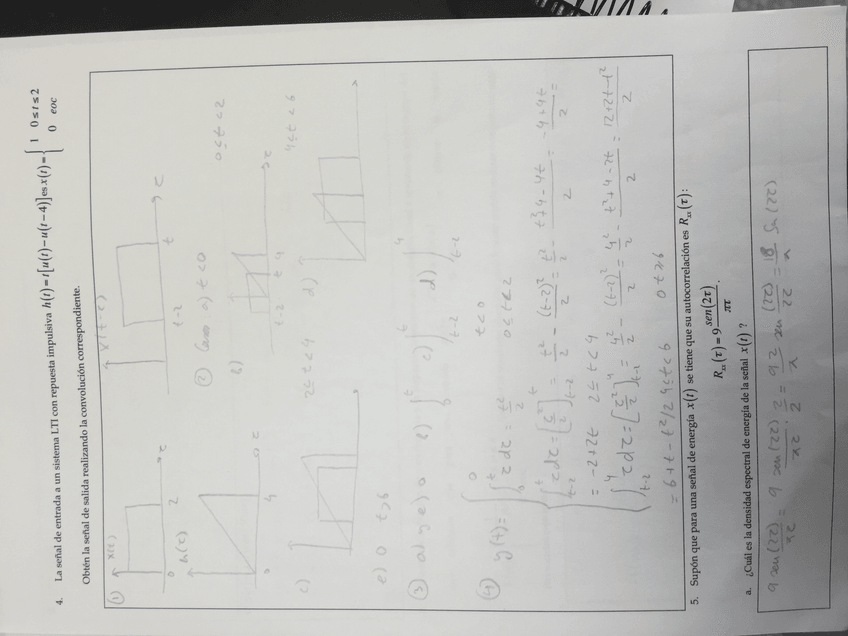 4. La señal de entrada a un sistema LTI con repuesta impulsiva h(t)=t[u(t)−u(t−4)] es x(t)={ 1 0≤t≤2
0 eoc
Obtén la señal de salida realizando la convolución correspondiente.
① x(t) x(t-τ)
0 2 τ t-2 t τ
h(τ) ② Caso a) t<0
0 4 τ b) 0≤t<2
t-2 t 4 τ
c) 2≤t<4 d) 4≤t<6
e) 0 t>6
③ a) y e) 0 b) ∫₀ᵗ c) ∫_{t-2}^t d) ∫_{t-2}^4
④ y(t)= { 0 t<0
∫₀ᵗ τdτ = t²/2 0≤t<2
∫_{t-2}^t τdτ = [τ²/2]_{t-2}^t = t²/2 - (t-2)²/2 = t²/2 - (t²+4-4t)/2 = (-4+4t)/2 =
= -2+2t 2≤t<4
∫_{t-2}^4 τdτ = [τ²/2]_{t-2}^4 = 4²/2 - (t-2)²/2 = 4²/2 - (t²+4-2t)/2 = (12+2t-t²)/2
= 6+t-t²/2 4≤t<6 0 t≥6
5. Supón que para una señal de energía x(t) se tiene que su autocorrelación es Rₓₓ(τ):
Rₓₓ(τ)=9 sen(2τ)/πτ.
a. ¿Cuál es la densidad espectral de energía de la señal x(t) ?
9 sen(2τ)/πτ = 9 sen(2τ)/πτ · 2/2 = 9·2/π sen(2τ)/2τ = 18/π Sa(2τ)